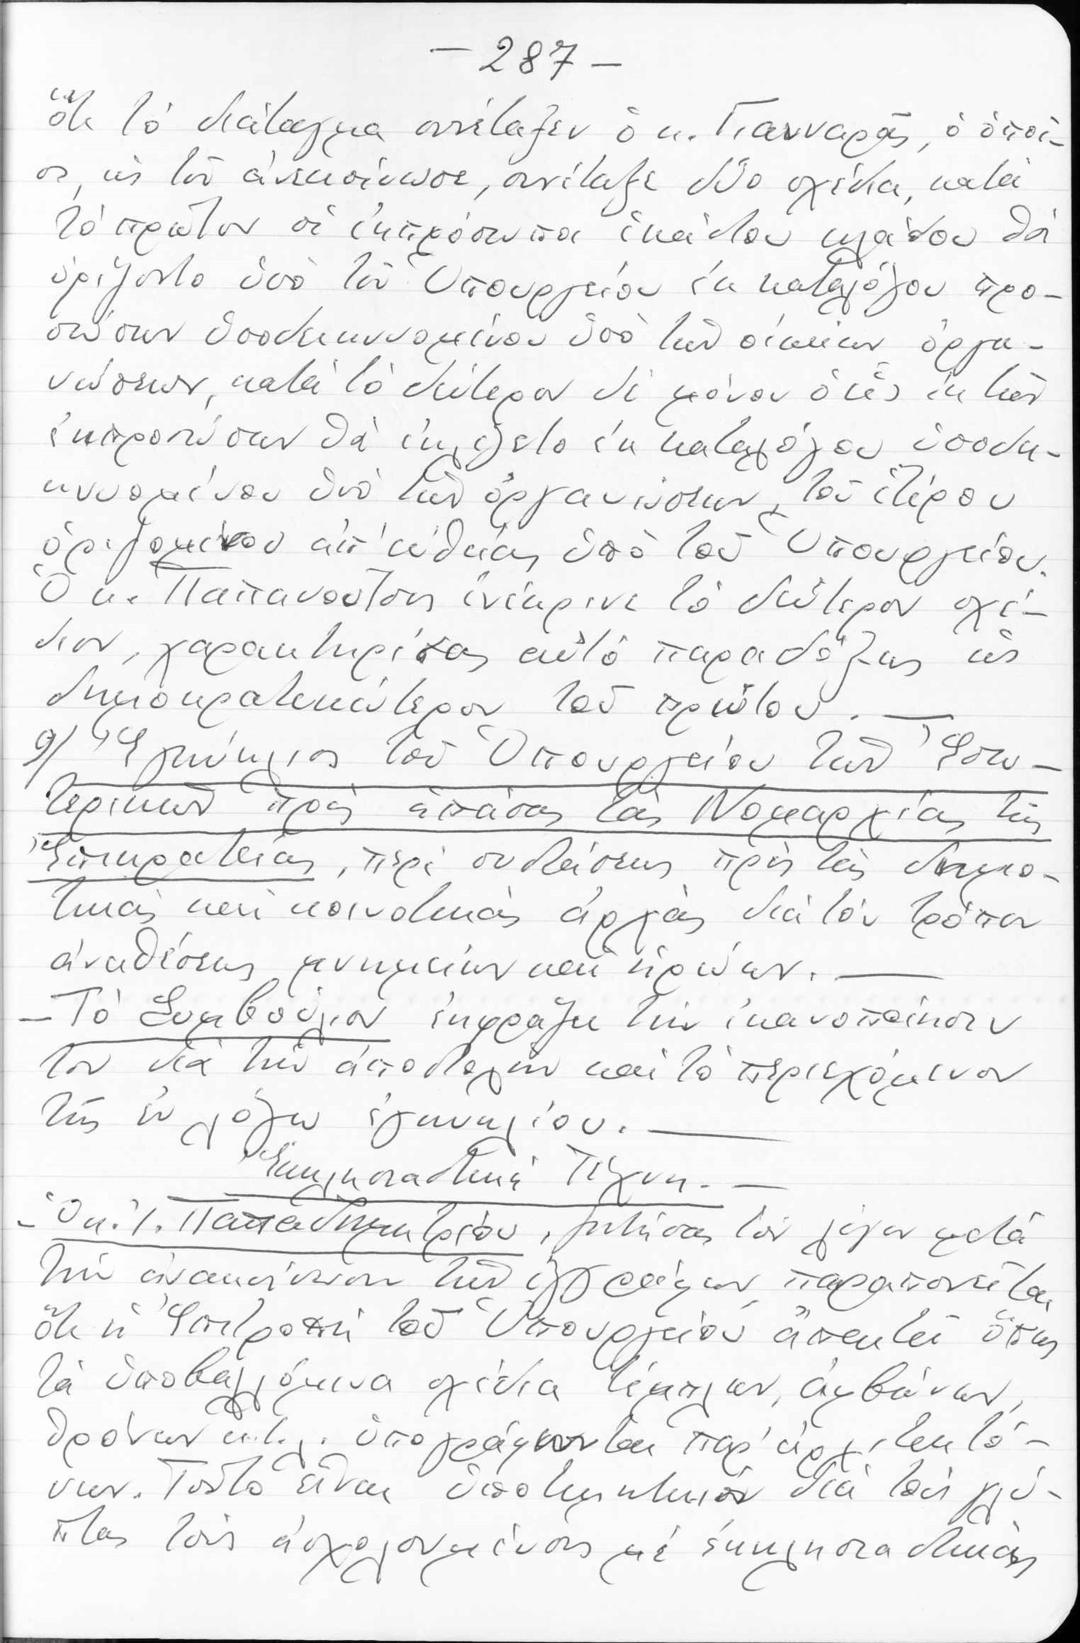 - 287 -
ὅτι τό διάταγμα συνέταξεν ὁ κ. Γιανναρᾶς, ὁ ὁποῖ-
ος, ὡς τοῦ ἀνεκοίνωσε, συνέταξε δύο σχέδια, κατά
τό πρῶτον οἱ ἐκπρόσωποι ἑκάστου κλάδου θά
ὁρίζοντο ὑπό τοῦ Ὑπουργείου ἐκ καταλόγου προ-
σώπων ὑποδεικνυομένου ὑπό τῶν οἰκείων ὀργα-
νώσεων, κατά τό δεύτερον δέ μόνον ὁ εἷς ἐκ τῶν
ἐκπροσώπων θά ἐκλέγετο ἐκ καταλόγου ὑποδει-
κνυομένου ὑπό τῶν ὀργανώσεων, τοῦ ἑτέρου
ὁριζομένου ἀπ' εὐθείας ὑπό τοῦ Ὑπουργείου.
Ὁ κ. Παπανοῦτσος ἐνέκρινε τό δεύτερον σχέ-
διον, χαρακτηρίσας αὐτό παραδόξως ὡς
δημοκρατικώτερον τοῦ πρώτου. —
9/ Ἐγκύκλιος τοῦ Ὑπουργείου τῶν Ἐσω-
τερικῶν πρός ἁπάσας τάς Νομαρχίας τῆς
Ἐπικρατείας, περί συστάσεως πρός τάς δημο-
τικάς καί κοινοτικάς ἀρχάς διά τόν τρόπον
ἀναθέσεως μνημείων καί ἡρώων. —
- Τό Συμβούλιον ἐκφράζει τήν ἱκανοποίησίν
του διά τήν ἀποστολήν καί τό περιεχόμενον
τῆς ἐν λόγῳ ἐγκυκλίου. —
Ἐκκλησιαστική Τέχνη. —
- Ὁ κ. Ι. Παπαδημητρίου, ζητήσας τόν λόγον μετά
τήν ἀνακοίνωσιν τῶν ἐγγράφων παραπονεῖται
ὅτι ἡ Ἐπιτροπή τοῦ Ὑπουργείου ἀπαιτεῖ ὅπως
τά ὑποβαλλόμενα σχέδια τέμπλων, ἀμβώνων,
θρόνων κ.τ.λ. ὑπογράφωνται παρ' ἀρχιτεκτό-
νων. Τοῦτο εἶναι ὑποτιμητικόν διά τούς γλύ-
πτας τούς ἀσχολουμένους μέ ἐκκλησιαστικάς